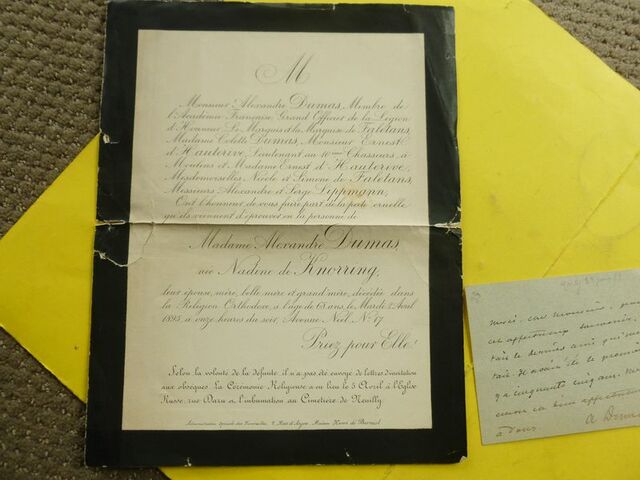 M
Monsieur Alexandre Dumas, Membre de
l'Académie Française Grand Officier de la Légion
d'Honneur Le Marquis et la Marquise de Faletans,
Madame Colette Dumas, Monsieur Ernest
d'Hauterive, Lieutenant au 10ème Chasseurs, à
Moulins et Madame Ernest d'Hauterive,
Mesdemoiselles Nicole et Simone de Faletans,
Messieurs Alexandre et Serge Lippmann,
Ont l'honneur de vous faire part de la perte cruelle
qu'ils viennent d'éprouver en la personne de
Madame Alexandre Dumas,
née Nadine de Knorring,
leur épouse, mère, belle-mère et grand'mère, décédée dans
la Religion Orthodoxe, à l'âge de 68 ans, le Mardi 2 Avril
1895 à onze heures du soir, Avenue Niel N° 67
Priez pour Elle!
Selon la volonté de la défunte, il n'a pas été envoyé de lettres d'invitation
aux obsèques. La Cérémonie Religieuse a eu lieu le 5 Avril à l'Eglise
Russe, rue Daru et l'inhumation au Cimetière de Neuilly.
Administration Spéciale des Funérailles
Maison Henri de Borniol
Merci, cher monsieur,
cet affectueux
le dernier ami qu'
le premier
cinquante cinq ans.
encore et bien affectueusement
à vous.
A Dumas